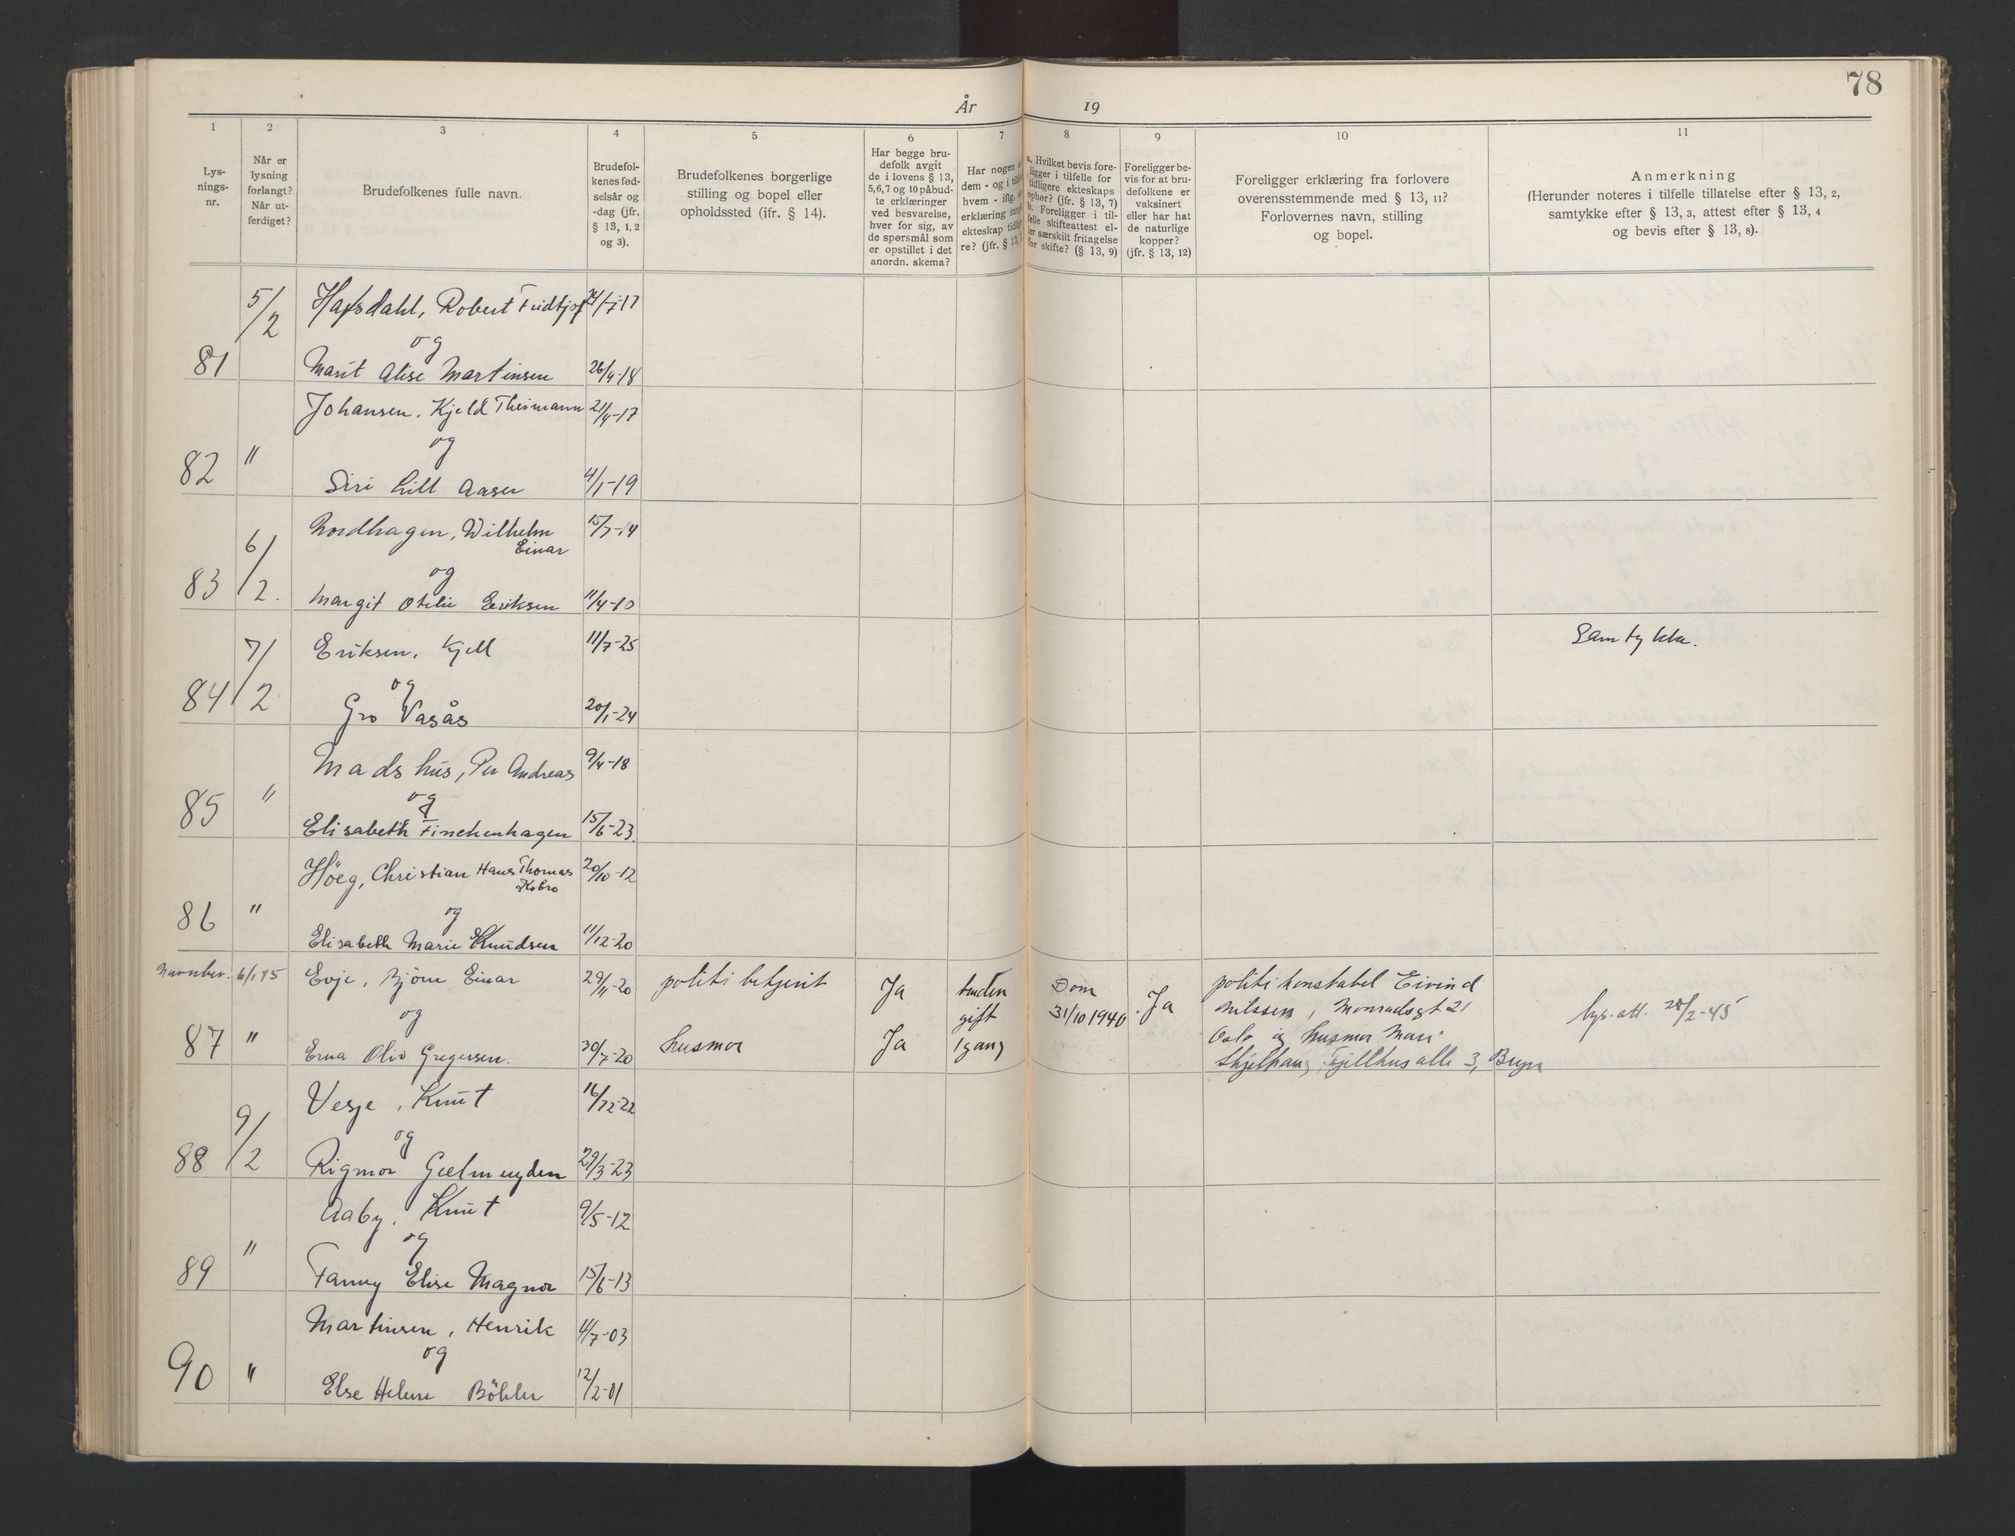 78
År 19
1 2 3 4 5 6 7 8 9 10 11
Lys-
nings-
nr.
Når er
lysning
forlangt?
Når ut-
ferdiget?
Brudefolkenes fulle navn.
Brudefol-
kenes fød-
selsår og
-dag (jfr.
§ 13, 1, 2
og 3).
Brudefolkenes borgerlige
stilling og bopel eller
opholdssted (ifr. § 14).
Har begge bru-
defolk avgit
de i lovens § 13,
5,6,7 og 10 påbud-
te erklæringer
ved besvarelse,
hver for sig, av
de spørsmål som
er opstillet i det
anordn. skema?
Har nogen
dem - og i
hvem - iflg.
erklæring
ekteskap
re? (jfr. § 13,
a. Hvilket bevis fore-
ligger i tilfelle for
tidligere ekteskaps
ophør? (jf. § 13, 7)
b. Foreligger i til-
felle skifteattest el-
ler særskilt fritagelse
for skifte? (§ 13, 9)
Foreligger be-
vis for at bru-
defolkene er
vaksinert
eller har hat
de naturlige
kopper?
(jfr. § 13, 12)
Foreligger erklæring fra forlovere
overensstemmende med § 13, 11?
Forlovernes navn, stilling
og bopel.
Anmerkning
(Herunder noteres i tilfelle tillatelse efter § 13, 2,
samtykke efter § 13, 3, attest efter § 13, 4
og bevis efter § 13, 8).
5/2 Hafsdahl, Robert Fridtjof -17
og
81 Marit Alise Martinsen 26/4-18
Johansen, Kjeld Theimann 21/4-17
og
82 " Siri Lill Aasen 4/1-19
6/2. Nordhagen, Wilhelm 15/7-14
Einar
og
83 Margit Otelie Eriksen 11/4-10
7/2 Eriksen, Kjell 11/7-25 Samtykke.
og
84 Gro Vasås 20/1-24
Madshus, Per Andreas 9/4-18
og
85 " Elisabeth Finckenhagen 15/6-23.
Höeg, Christian Hans Thomas 20/10-12
Kobro
og
86 " Elisabeth Marie Knudsen 11/12-20
6/1 45 Evje, Bjørn Einar 29/11-20 politi betjent Ja Dom Ja politikonstabel Eivind
og gift 31/10 1940. Nilssen, Monradsgt 21 28/2-45
87 " Erna Oliv Gregersen. 30/7-20 husmor Ja 1 gang Oslo og husmor Mari
Fjellhus alle 3, Bryn
9/2 Vesje, Knut 16/12-22
og
88 Rigmor Gjelmuyden 29/3-23
Aaby, Knut 9/5-12
og
89 " Fanny Elise Magnor 15/6-13
Martinsen, Henrik 4/7-03
og
90 " Else Helene Böhler 12/2-01